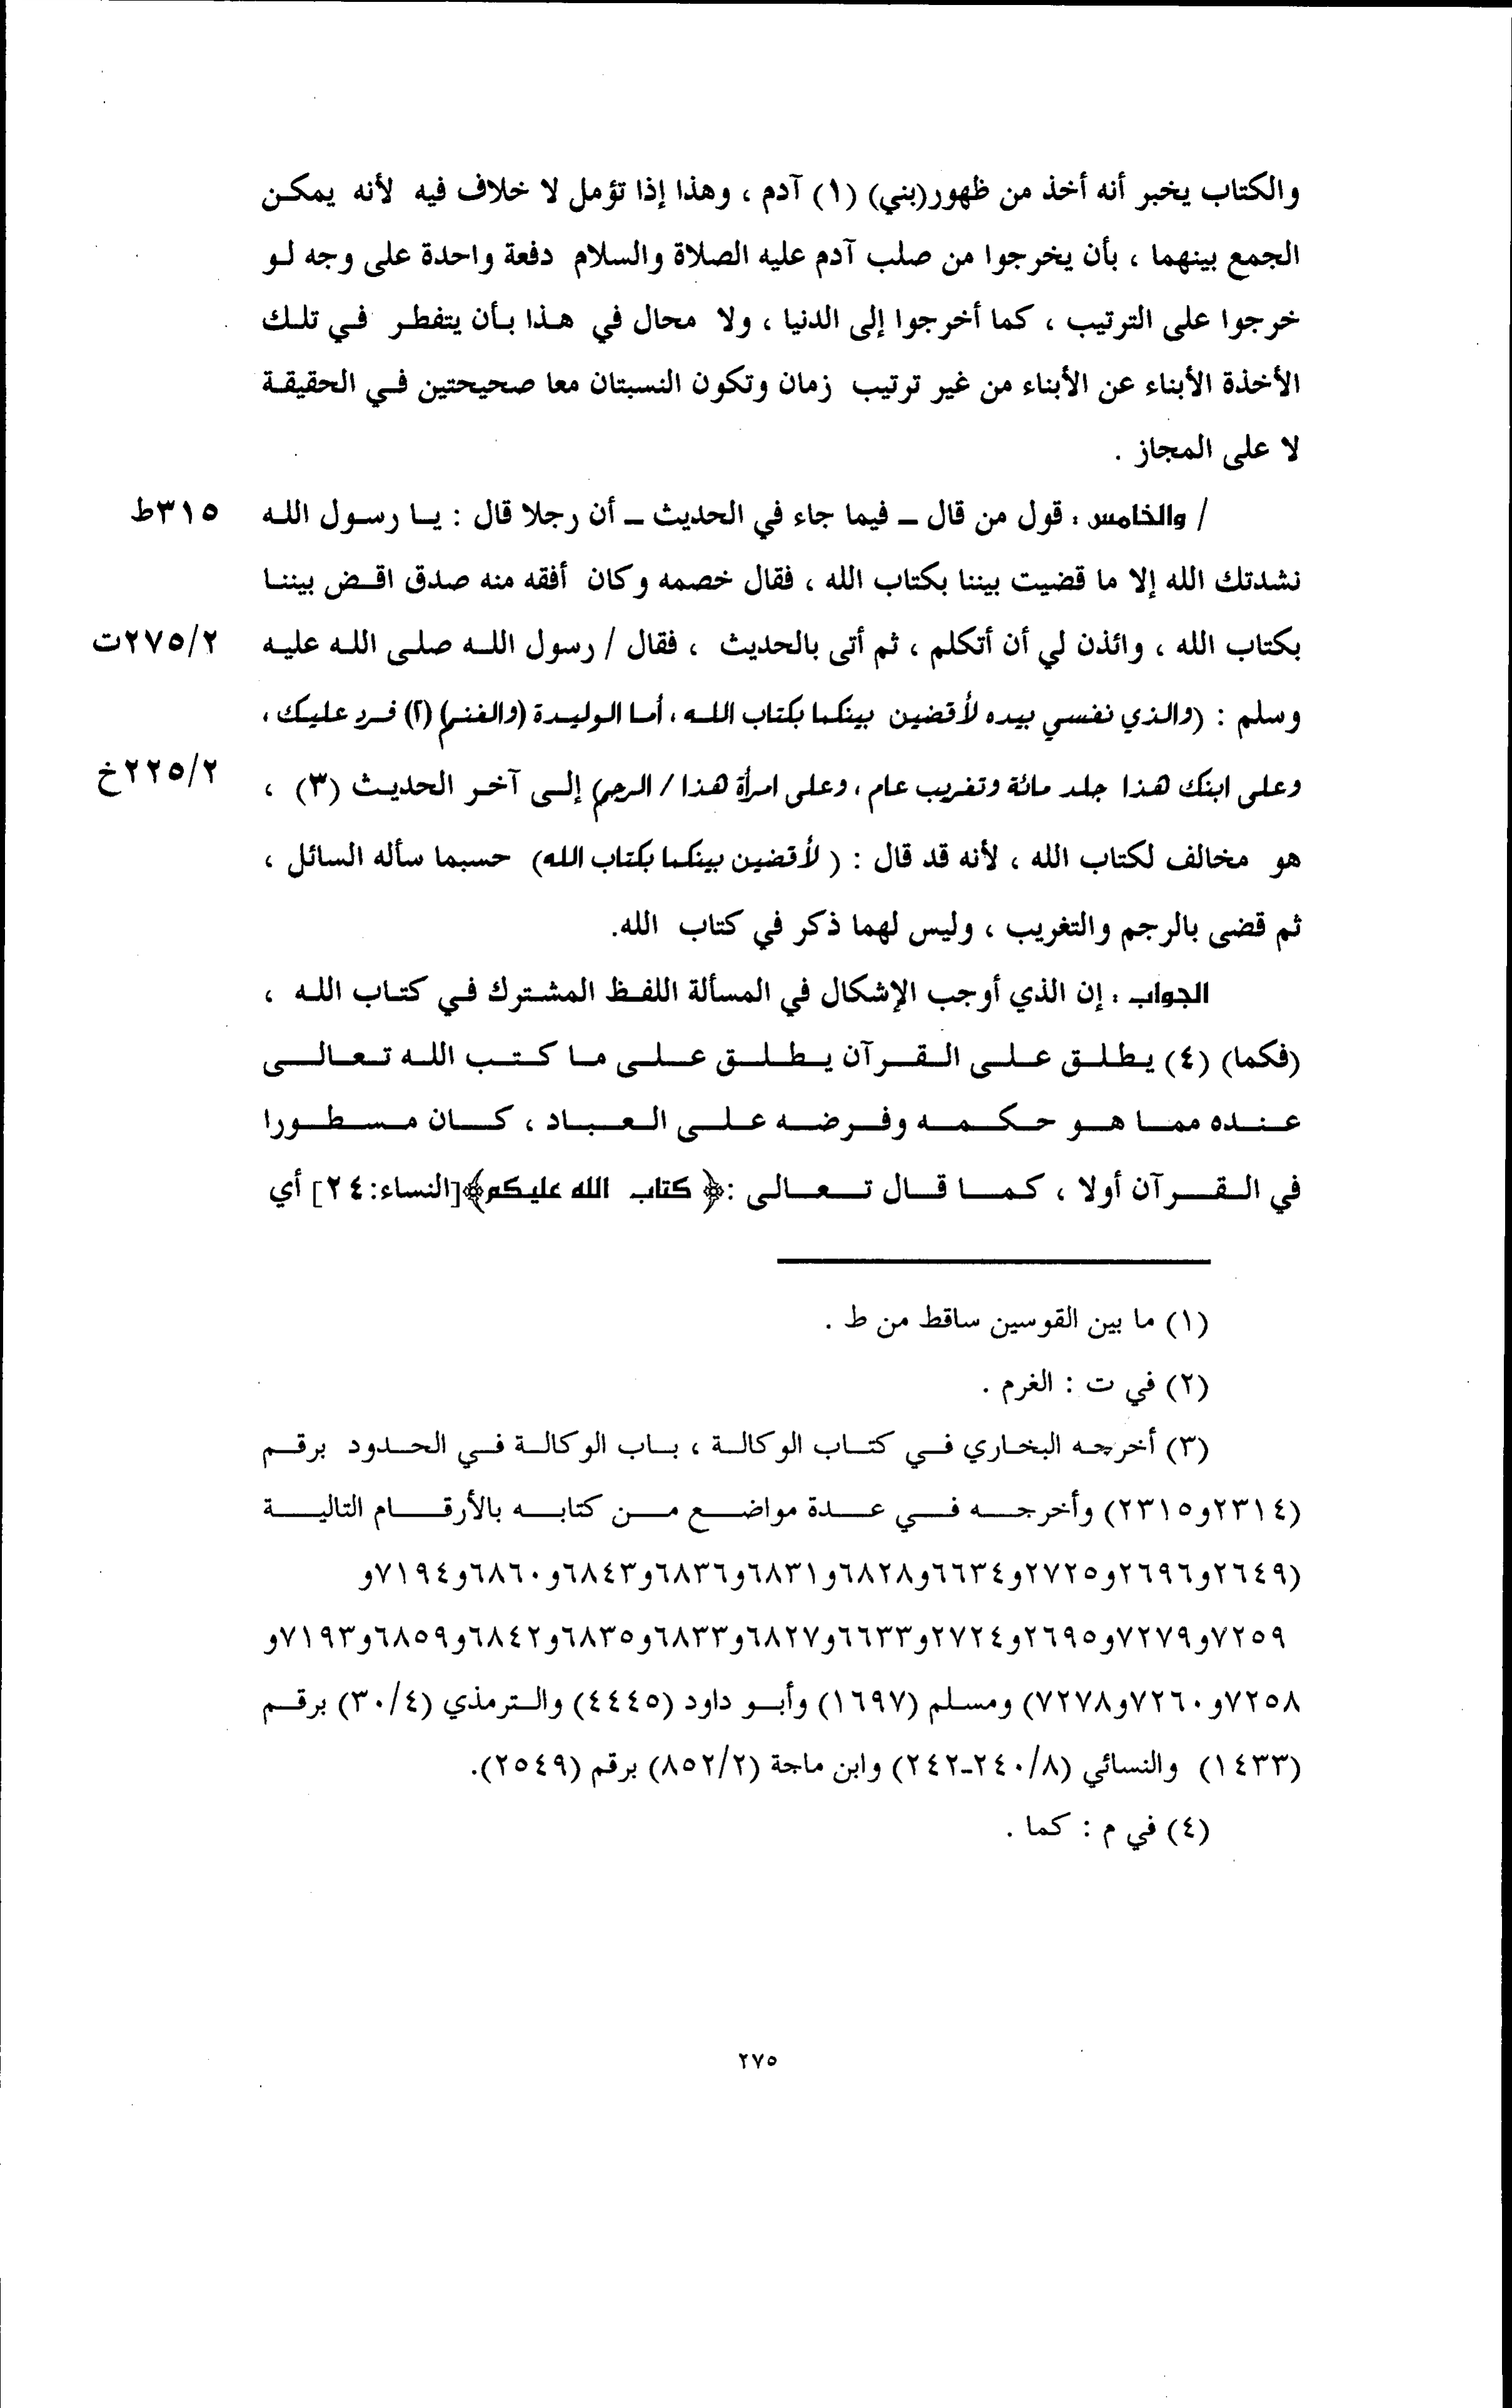 والكتاب يخبر أنه أخذ من ظهور(بني) (١) آدم ، وهذا إذا تؤمل لا خلاف فيه لأنه يمكن
الجمع بينهما ، بأن يخرجوا من صلب آدم عليه الصلاة والسلام دفعة واحدة على وجه لو
خرجوا على الترتيب ، كما أخرجوا إلى الدنيا ، ولا محال في هذا بأن يتفطر في تلك
الأخذة الأبناء عن الأبناء من غير ترتيب زمان وتكون النسبتان معا صحيحتين في الحقيقة
لا على المجاز .
/ والخامس : قول من قال ـ فيما جاء في الحديث ـ أن رجلا قال : يا رسول الله ٣١٥ط
نشدتك الله إلا ما قضيت بيننا بكتاب الله ، فقال خصمه وكان أفقه منه صدق اقض بيننا
بكتاب الله ، وائذن لي أن أتكلم ، ثم أتى بالحديث ، فقال / رسول الله صلى الله عليه ٢٧٥/٢ت
وسلم : (والذي نفسي بيده لأقضين بينكما بكتاب الله ، أما الوليدة (والغنم) (٢) فرد عليك ،
وعلى ابنك هذا جلد مائة وتغريب عام ، وعلى امرأة هذا / الرجم) إلى آخر الحديث (٣) ، ٢٢٥/٢خ
هو مخالف لكتاب الله ، لأنه قد قال : ( لأقضين بينكما بكتاب الله) حسبما سأله السائل ،
ثم قضى بالرجم والتغريب ، وليس لهما ذكر في كتاب الله.
الجواب : إن الذي أوجب الإشكال في المسألة اللفظ المشترك في كتاب الله ،
(فكما) (٤) يطلق على القرآن يطلق على ما كتب الله تعالى
عنده مما هو حكمه وفرضه على العباد ، كان مسطورا
في القرآن أولا ، كما قال تعالى :﴿ كتاب الله عليكم﴾[النساء:٢٤] أي
(١) ما بين القوسين ساقط من ط .
(٢) في ت : الغرم .
(٣) أخرجه البخاري في كتاب الوكالة ، باب الوكالة في الحدود برقم
(٢٣١٤و٢٣١٥) وأخرجه في عدة مواضع من كتابه بالأرقام التالية
(٢٦٤٩و٢٦٩٦و٢٧٢٥و٦٦٣٤و٦٨٢٨و٦٨٣١و٦٨٣٦و٦٨٤٣و٦٨٦٠و٧١٩٤و
٧٢٥٩و٧٢٧٩و٢٦٩٥و٢٧٢٤و٦٦٣٣و٦٨٢٧و٦٨٣٣و٦٨٣٥و٦٨٤٢و٦٨٥٩و٧١٩٣و
٧٢٥٨و٧٢٦٠و٧٢٧٨) ومسلم (١٦٩٧) وأبو داود (٤٤٤٥) والترمذي (٣٠/٤) برقم
(١٤٣٣) والنسائي (٢٤٠/٨-٢٤٢) وابن ماجة (٨٥٢/٢) برقم (٢٥٤٩).
(٤) في م : كما .
٢٧٥